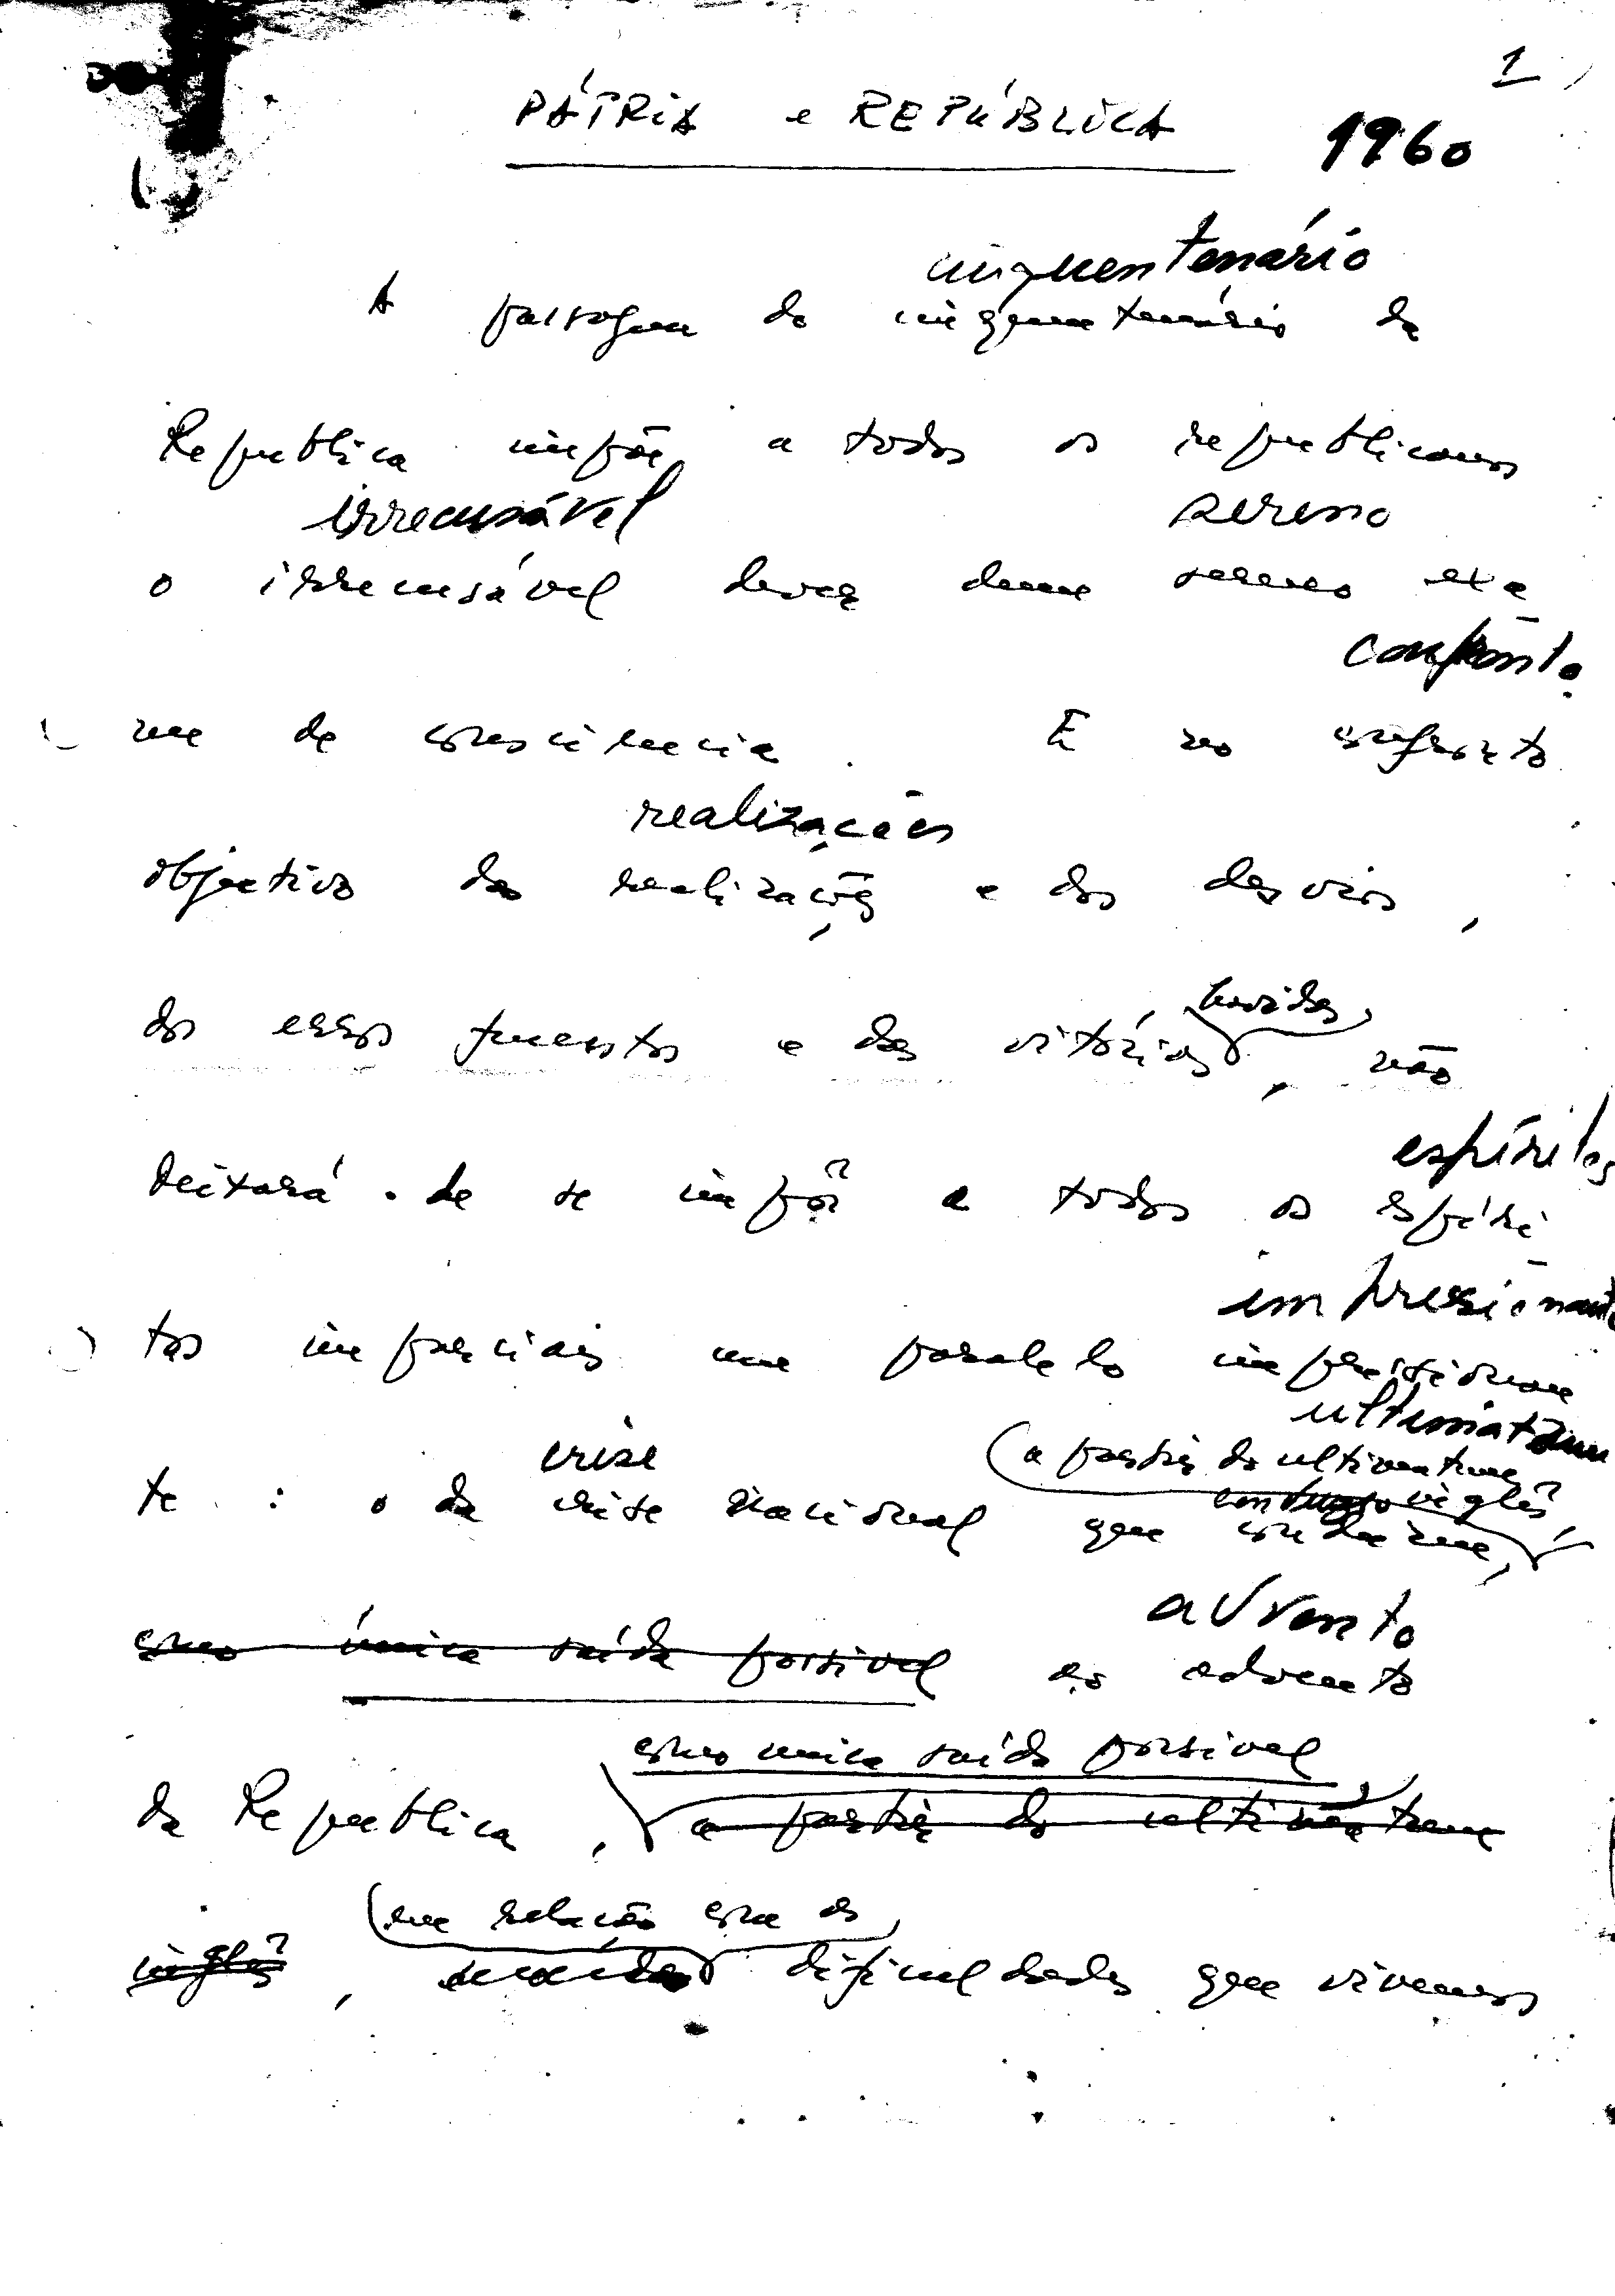 1
PÁTRIA e REPÚBLICA 1960
cinquentenário
A passagem do cinquentenário da
República impõe a todos os republicanos
irrecusável sereno
o irrecusável dever dum sereno exa
confronto
me de consciência. E no confronto
realizações
objectivo das realizações e dos desvios,
havidas,
dos erros funestos e das vitórias, não
espíritos
deixará de se impôr a todos os espíri
impressionante
tos imparciais um paralelo impressionan
ultimatum
crise (a partir do ultimatum
te : o da crise nacional que conduziu, inglês,
como única saída possível ao advento
advento
como única saída possível
da República, a partir do ultimatum
em relação com as
inglês, dificuldades que vivemos